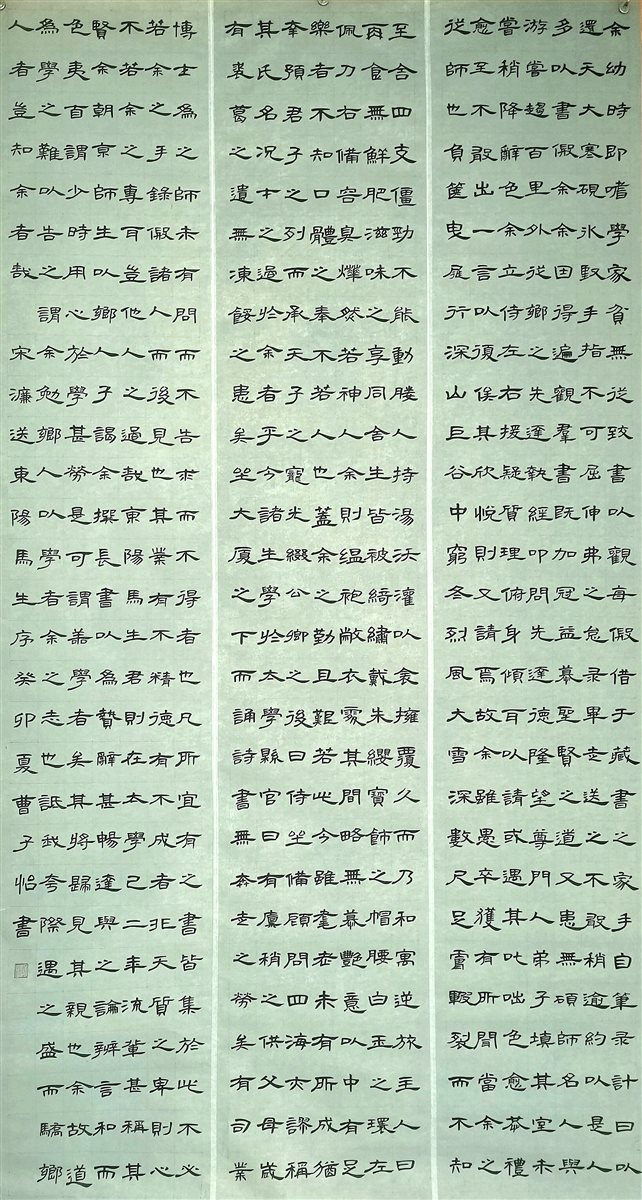 余幼時即嗜學家貧無從致書以觀每假借于藏書之家手自筆录計日以
還天大寒硯氷堅手指不可屈伸弗之怠录畢走送之不敢稍逾約以是人
多以書假余余因得遍觀羣書既加冠益慕聖賢之道又患無碩師名人與
游嘗趨百里外從鄉之先達執經叩問先達德隆望尊門人弟子填其室未
嘗稍降辭色余立侍左右援疑質理俯身傾耳以請或遇其叱咄色愈恭禮
愈至不敢出一言以復俟其欣悅則又請焉故余雖愚卒獲有所聞當余之
從師也負篋曳屣行深山巨谷中窮冬烈風大雪深數尺足膚皸裂而不知
至舍四支僵勁不能動媵人持湯沃灌以衾擁覆久而乃和寓逆旅主人日
再食無鮮肥滋味之享同舍生皆被綺繡戴朱纓寶飾之帽腰白玉之環左
佩刀右備容臭燁然若神人余則緼袍敝衣處其間略無慕豔意以中有足
樂者不知口體之奉不若人也蓋余之勤且艱若此今雖耄老未有所成猶
幸預君子之列而承天子之寵光綴公卿之後日侍坐備顧問四海亦謬稱
其氏名況才之過於余者乎今諸生學於太學縣官日有廩稍之供父母歲
有裘葛之遺無凍餒之患矣坐大厦之下而誦詩書無奔走之勞矣有司業
博士為之師未有問而不告求而不得者也凡所宜有之書皆集於此不必
若余之手錄假諸人而後見也其業有不精德有不成者非天質之卑則心
不若余之專耳豈他人之過哉東陽馬生君則在太學已二年流輩甚稱其
賢余朝京師生以鄉人子謁余撰長書以為贄辭甚暢達與之論辨言和而
色夷自謂少時用心於學甚勞是可謂善學者矣其將歸見其親也余故道
為學之難以告之謂余勉鄉人以學者余之志也詆我夸際遇之盛而驕鄉
人者豈知余者哉 宋濂送東陽馬生序癸卯夏曹子怡書